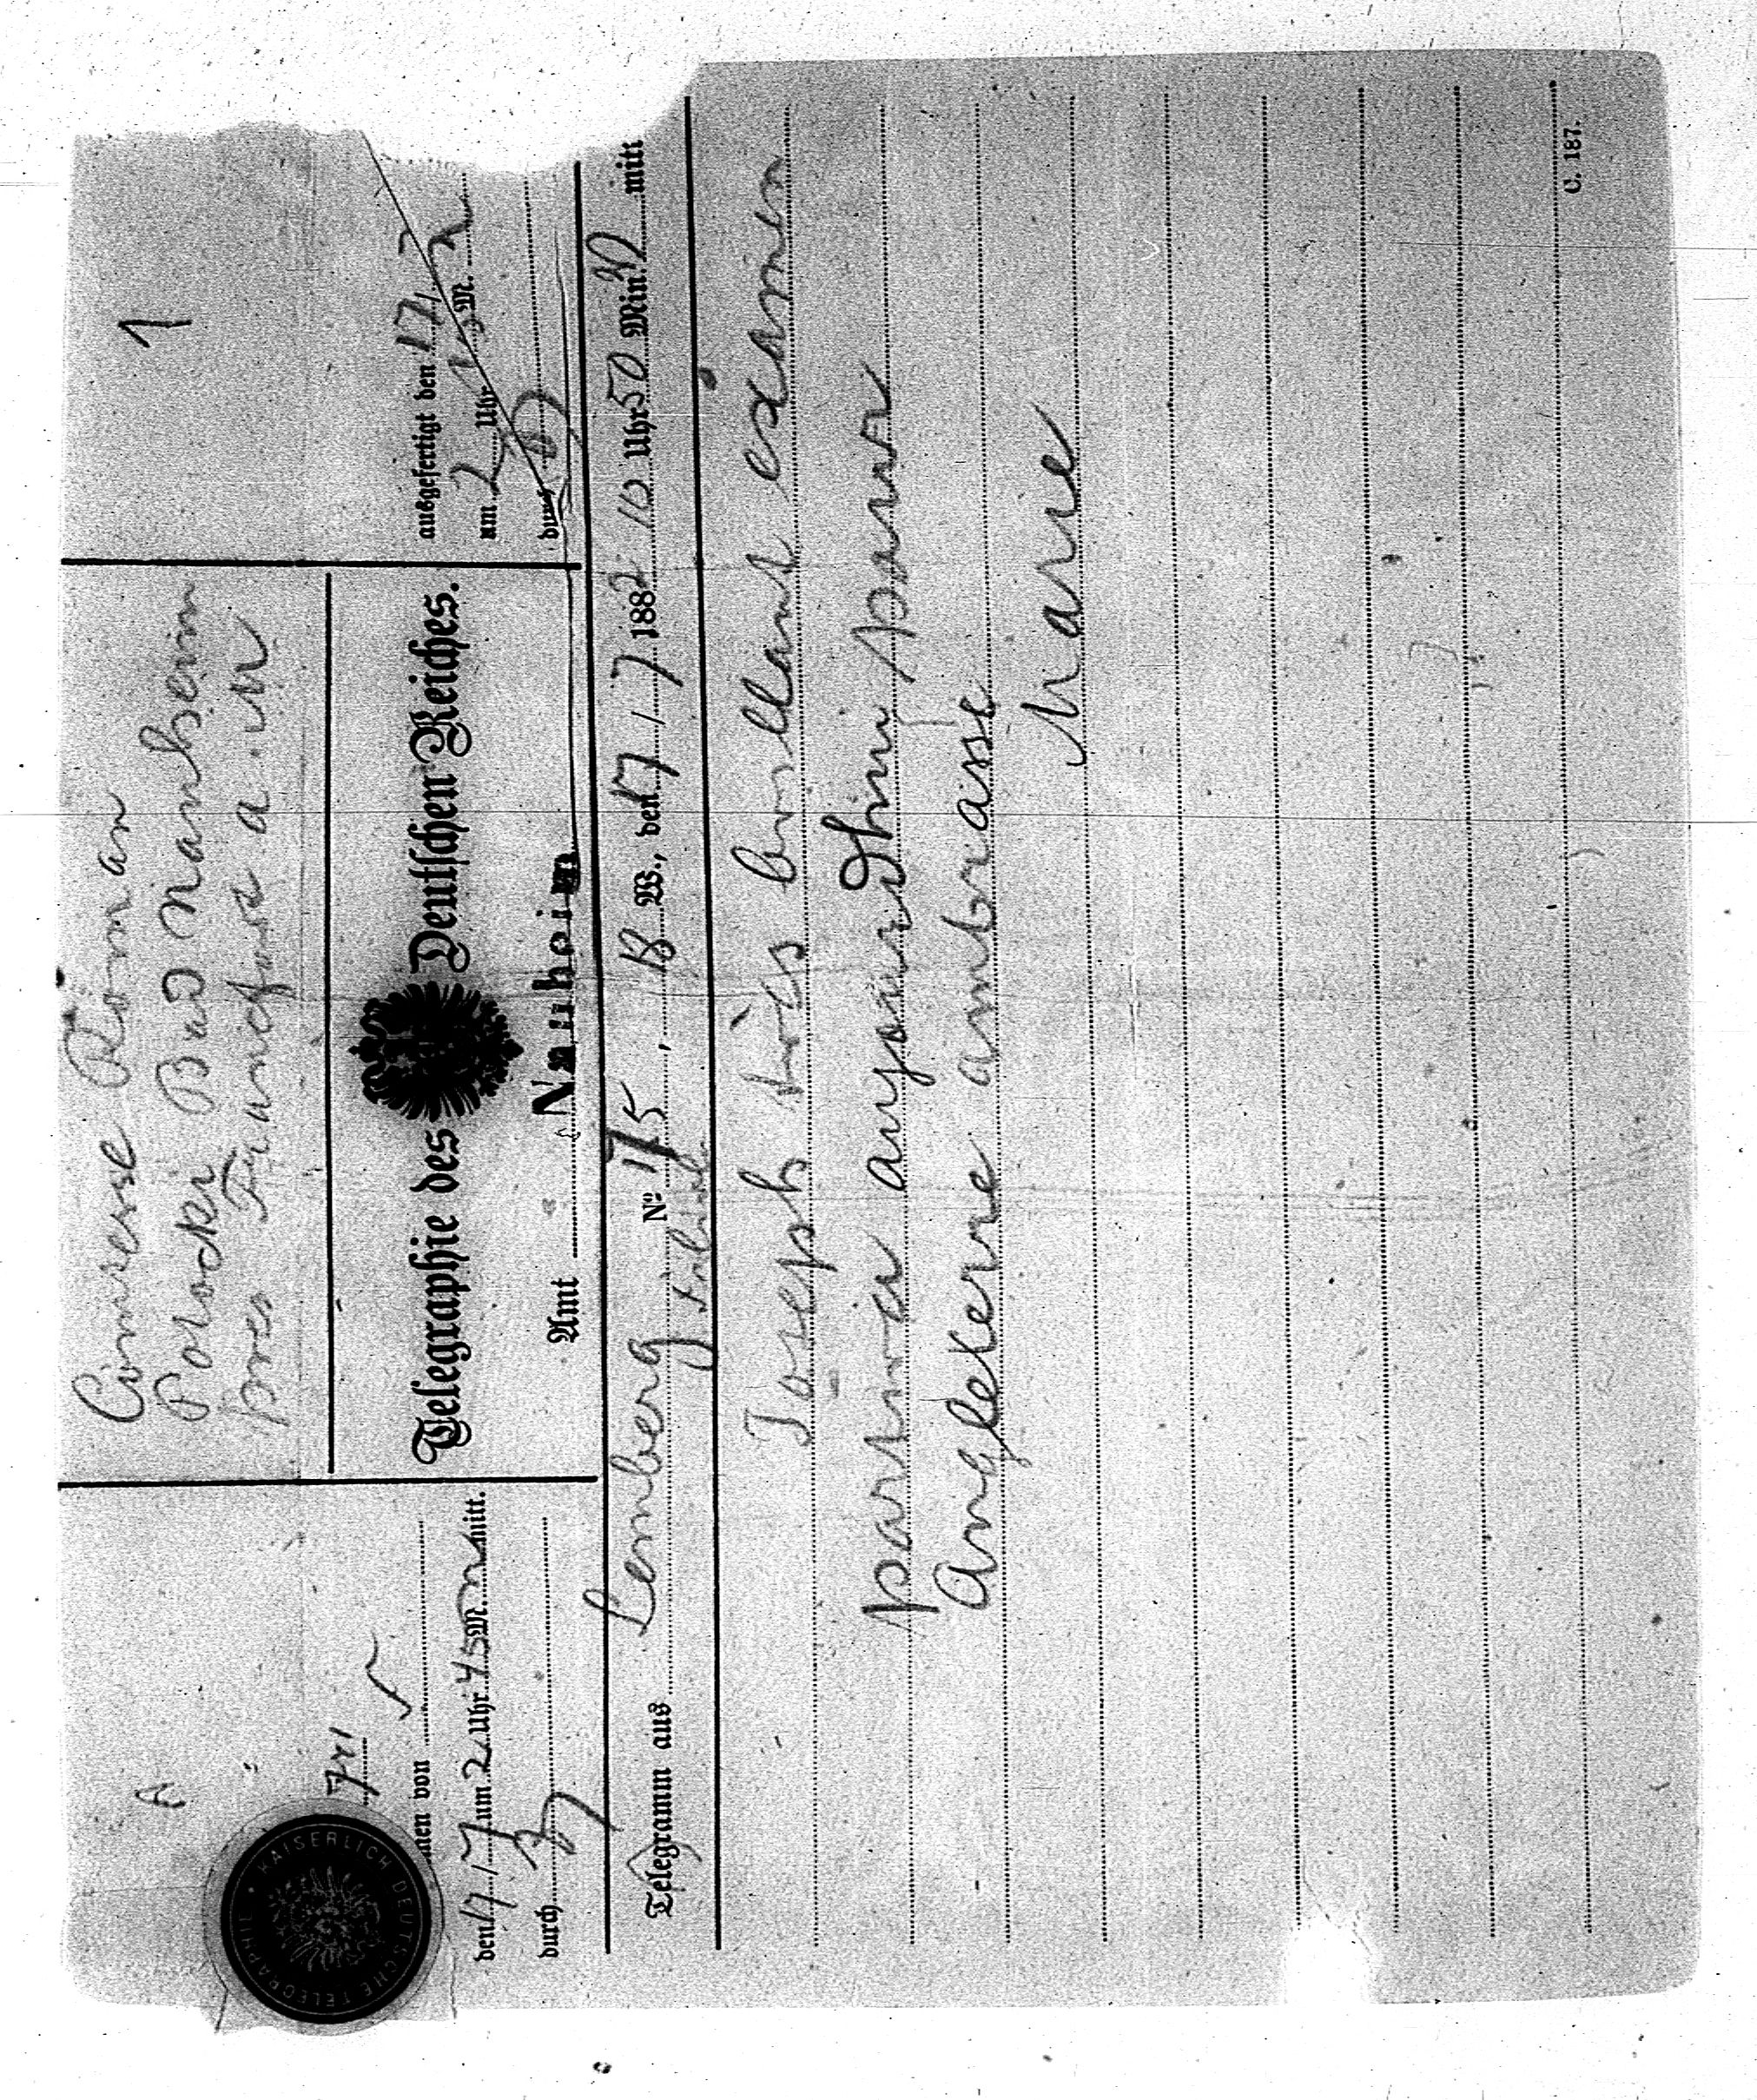 1
Comtesse Roman
Potocki Bad Nanheim
pres Francfort a. M
Telegraphie des Deutschen Reiches.
Amt Nauheim
KAISERLICH DEUTSCHE TELEGRAPHIE
nen von
den 17/7 um 2 Uhr 45 M. mitt.
durch
ausgefertigt den 17/7
um 2 Uhr M.
durch
Telegramm aus Lemberg No 175, 18 W., den 17/7 1882 10 Uhr 50 Min. mitt
Joseph très brillant examen
partira aujourdhui pour
Angleterre ambrasse
Marie
C. 187.